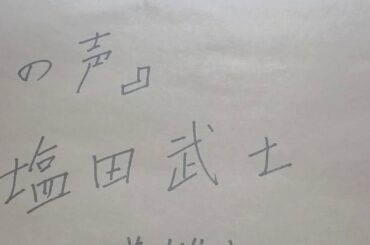 の声』
塩田武士